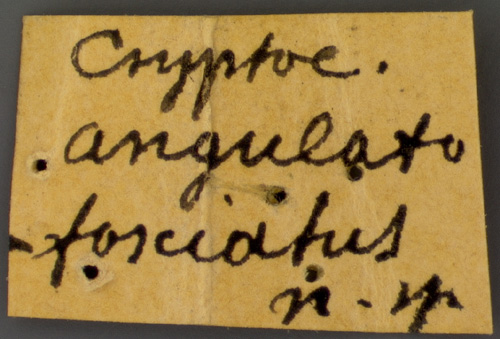 Cryptoc.
angulato
-fasciatus
n. sp